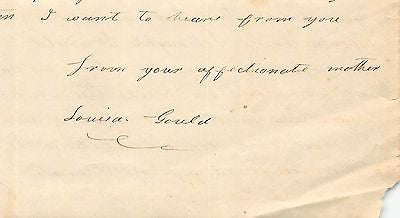 I want to heare from you
from your affectionate mother
Louisa Gould